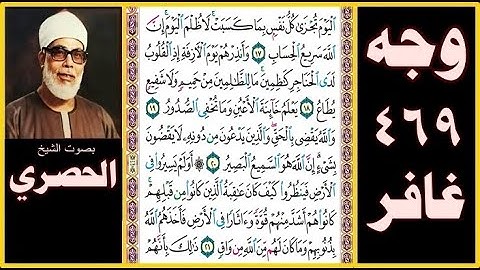 وجه
٤٦٩
غافر
بصوت الشيخ
الحصري
ٱلْيَوْمَ تُجْزَىٰ كُلُّ نَفْسٍۭ بِمَا كَسَبَتْ ۚ لَا ظُلْمَ ٱلْيَوْمَ ۚ إِنَّ
ٱللَّهَ سَرِيعُ ٱلْحِسَابِ ١٧ وَأَنذِرْهُمْ يَوْمَ ٱلْءَازِفَةِ إِذِ ٱلْقُلُوبُ
لَدَى ٱلْحَنَاجِرِ كَٰظِمِينَ ۚ مَا لِلظَّٰلِمِينَ مِنْ حَمِيمٍ وَلَا شَفِيعٍ
يُطَاعُ ١٨ يَعْلَمُ خَآئِنَةَ ٱلْأَعْيُنِ وَمَا تُخْفِى ٱلصُّدُورُ ١٩
وَٱللَّهُ يَقْضِى بِٱلْحَقِّ ۖ وَٱلَّذِينَ يَدْعُونَ مِن دُونِهِۦ لَا يَقْضُونَ
بِشَىْءٍ ۗ إِنَّ ٱللَّهَ هُوَ ٱلسَّمِيعُ ٱلْبَصِيرُ ٢٠ ۞ أَوَلَمْ يَسِيرُوا۟ فِى
ٱلْأَرْضِ فَيَنظُرُوا۟ كَيْفَ كَانَ عَٰقِبَةُ ٱلَّذِينَ كَانُوا۟ مِن قَبْلِهِمْ ۚ
كَانُوا۟ هُمْ أَشَدَّ مِنْهُمْ قُوَّةً وَءَاثَارًا فِى ٱلْأَرْضِ فَأَخَذَهُمُ ٱللَّهُ
بِذُنُوبِهِمْ وَمَا كَانَ لَهُم مِّنَ ٱللَّهِ مِن وَاقٍ ٢١ ذَٰلِكَ بِأَنَّهُمْ